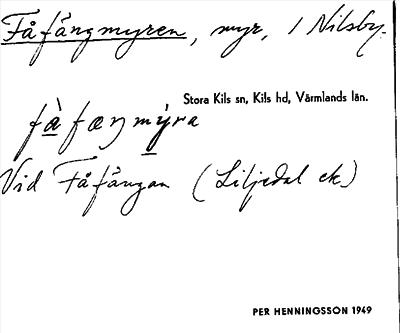 Fåfängmyren, myr, 1 Nilsby.
Stora Kils sn, Kils hd, Värmlands län.
fàfæŋmýra
Vid Fåfängan (Liljedal ek)
PER HENNINGSSON 1949